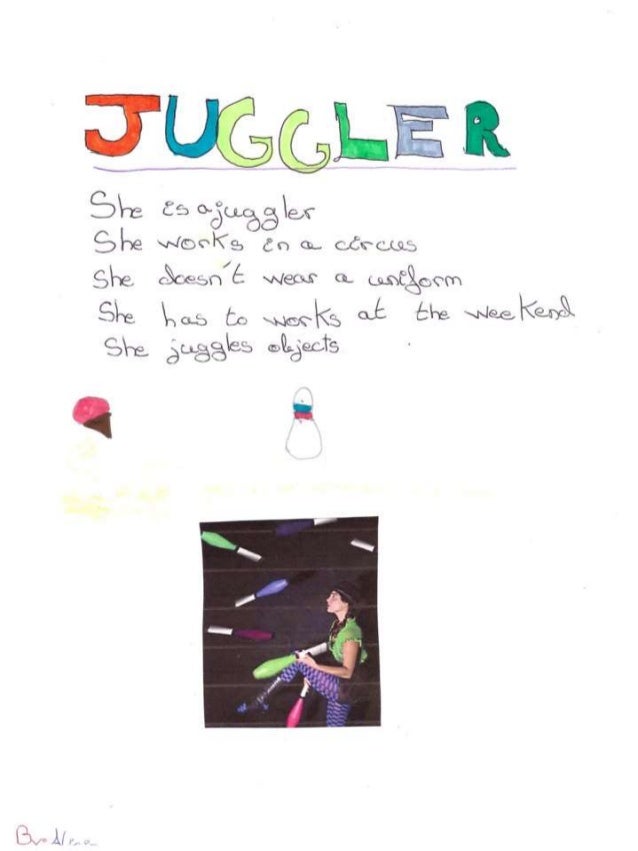 JUGGLER
She is a juggler
She works in a circus
She doesn't wear a uniform
She has to works at the weekend
She juggles objects